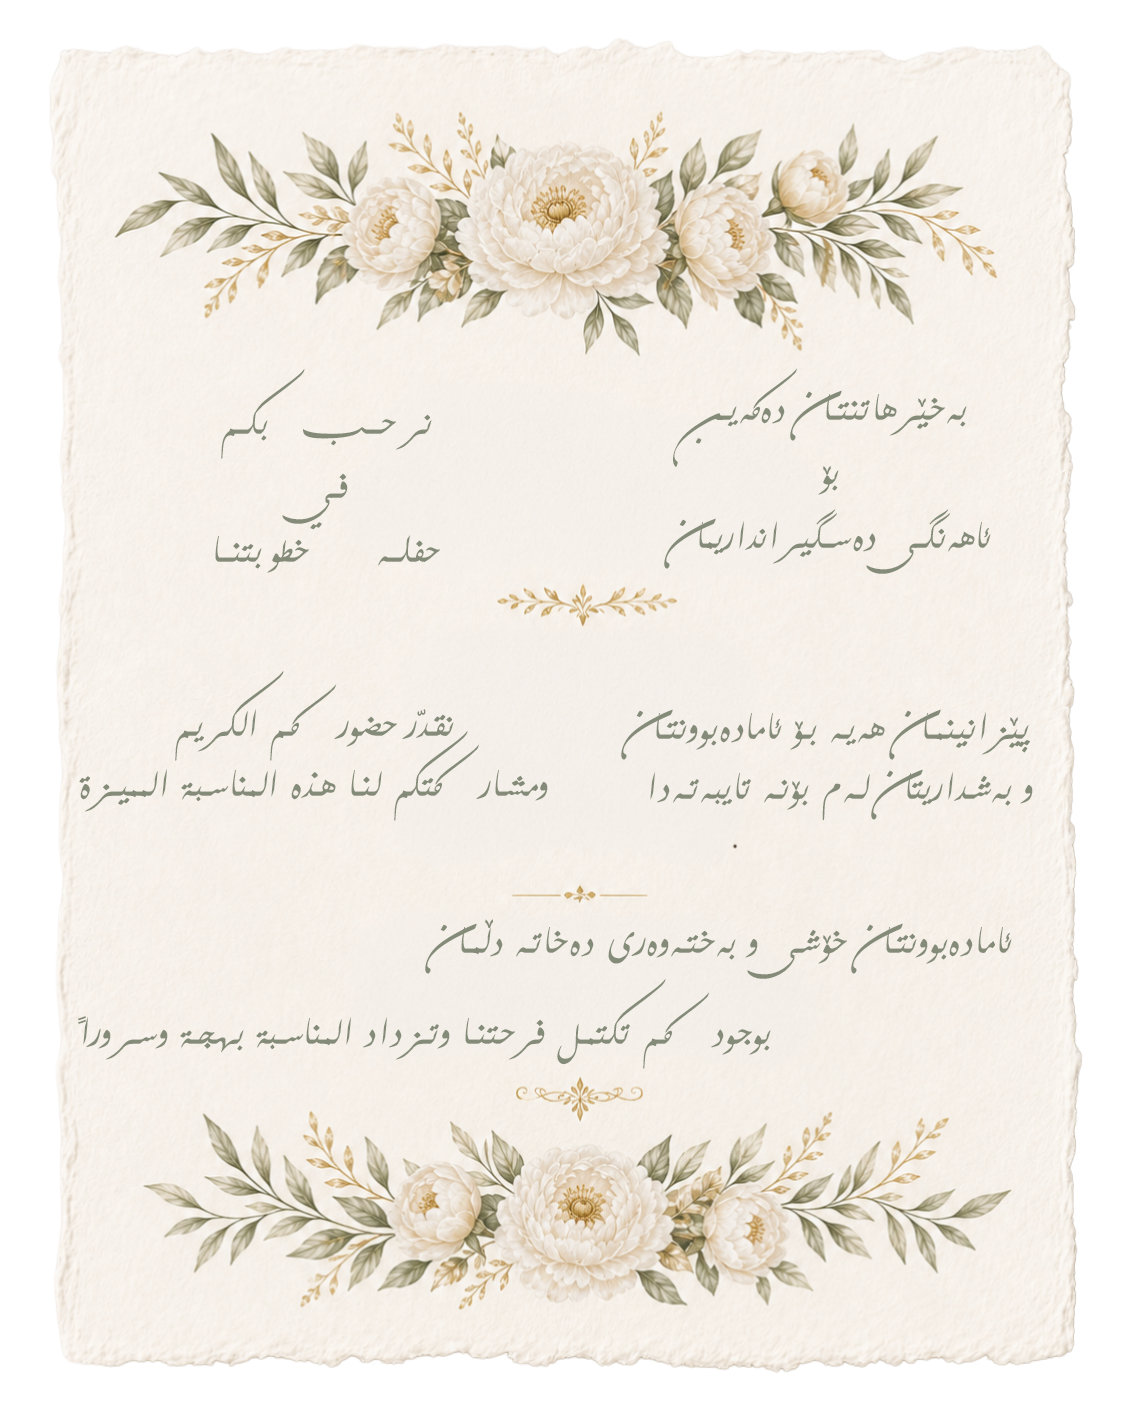 بەخێرهاتنتان دەکەین
بۆ
ئاهەنگی دەسگیراندارییمان
نرحب بكم
في
حفلـه خطوبتنا
پێزانینمان هەیە بۆ ئامادەبوونتان
و بەشداریتان لەم بۆنە تایبەتەدا
.
نقدّر حضوركم الكريم
ومشاركتكم لنا هذه المناسبة المميزة
ئامادەبوونتان خۆشی و بەختەوەری دەخاتە دڵمان
بوجودكم تكتمل فرحتنا وتزداد المناسبة بهجة وسروراً